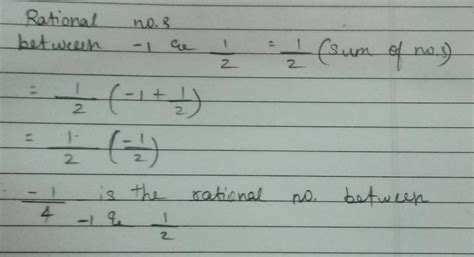 Rational no.s
between -1 & 1/2 = 1/2 (sum of no.s)
= 1/2 (-1 + 1/2)
= 1/2 (-1/2)
-1/4 is the rational no. between
-1 & 1/2